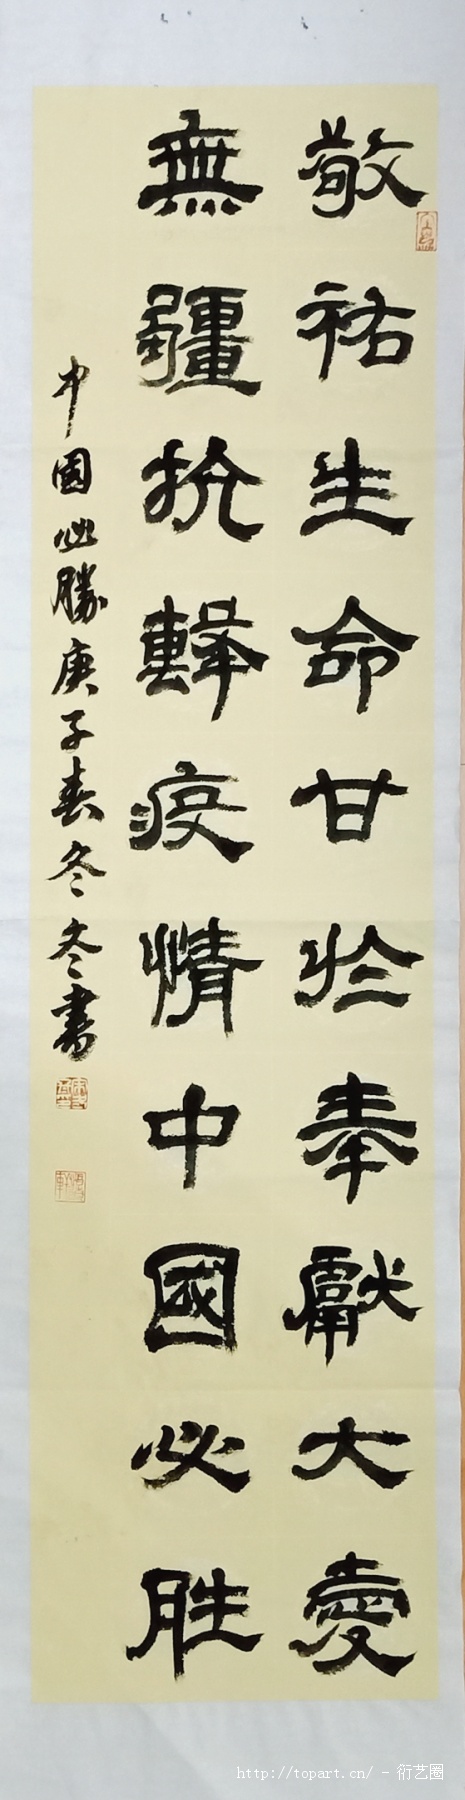 敬祐生命甘於奉獻大愛
無疆抗擊疫情中國必胜
中國必勝庚子春冬冬書
http://topart.cn/ - 衍艺圈